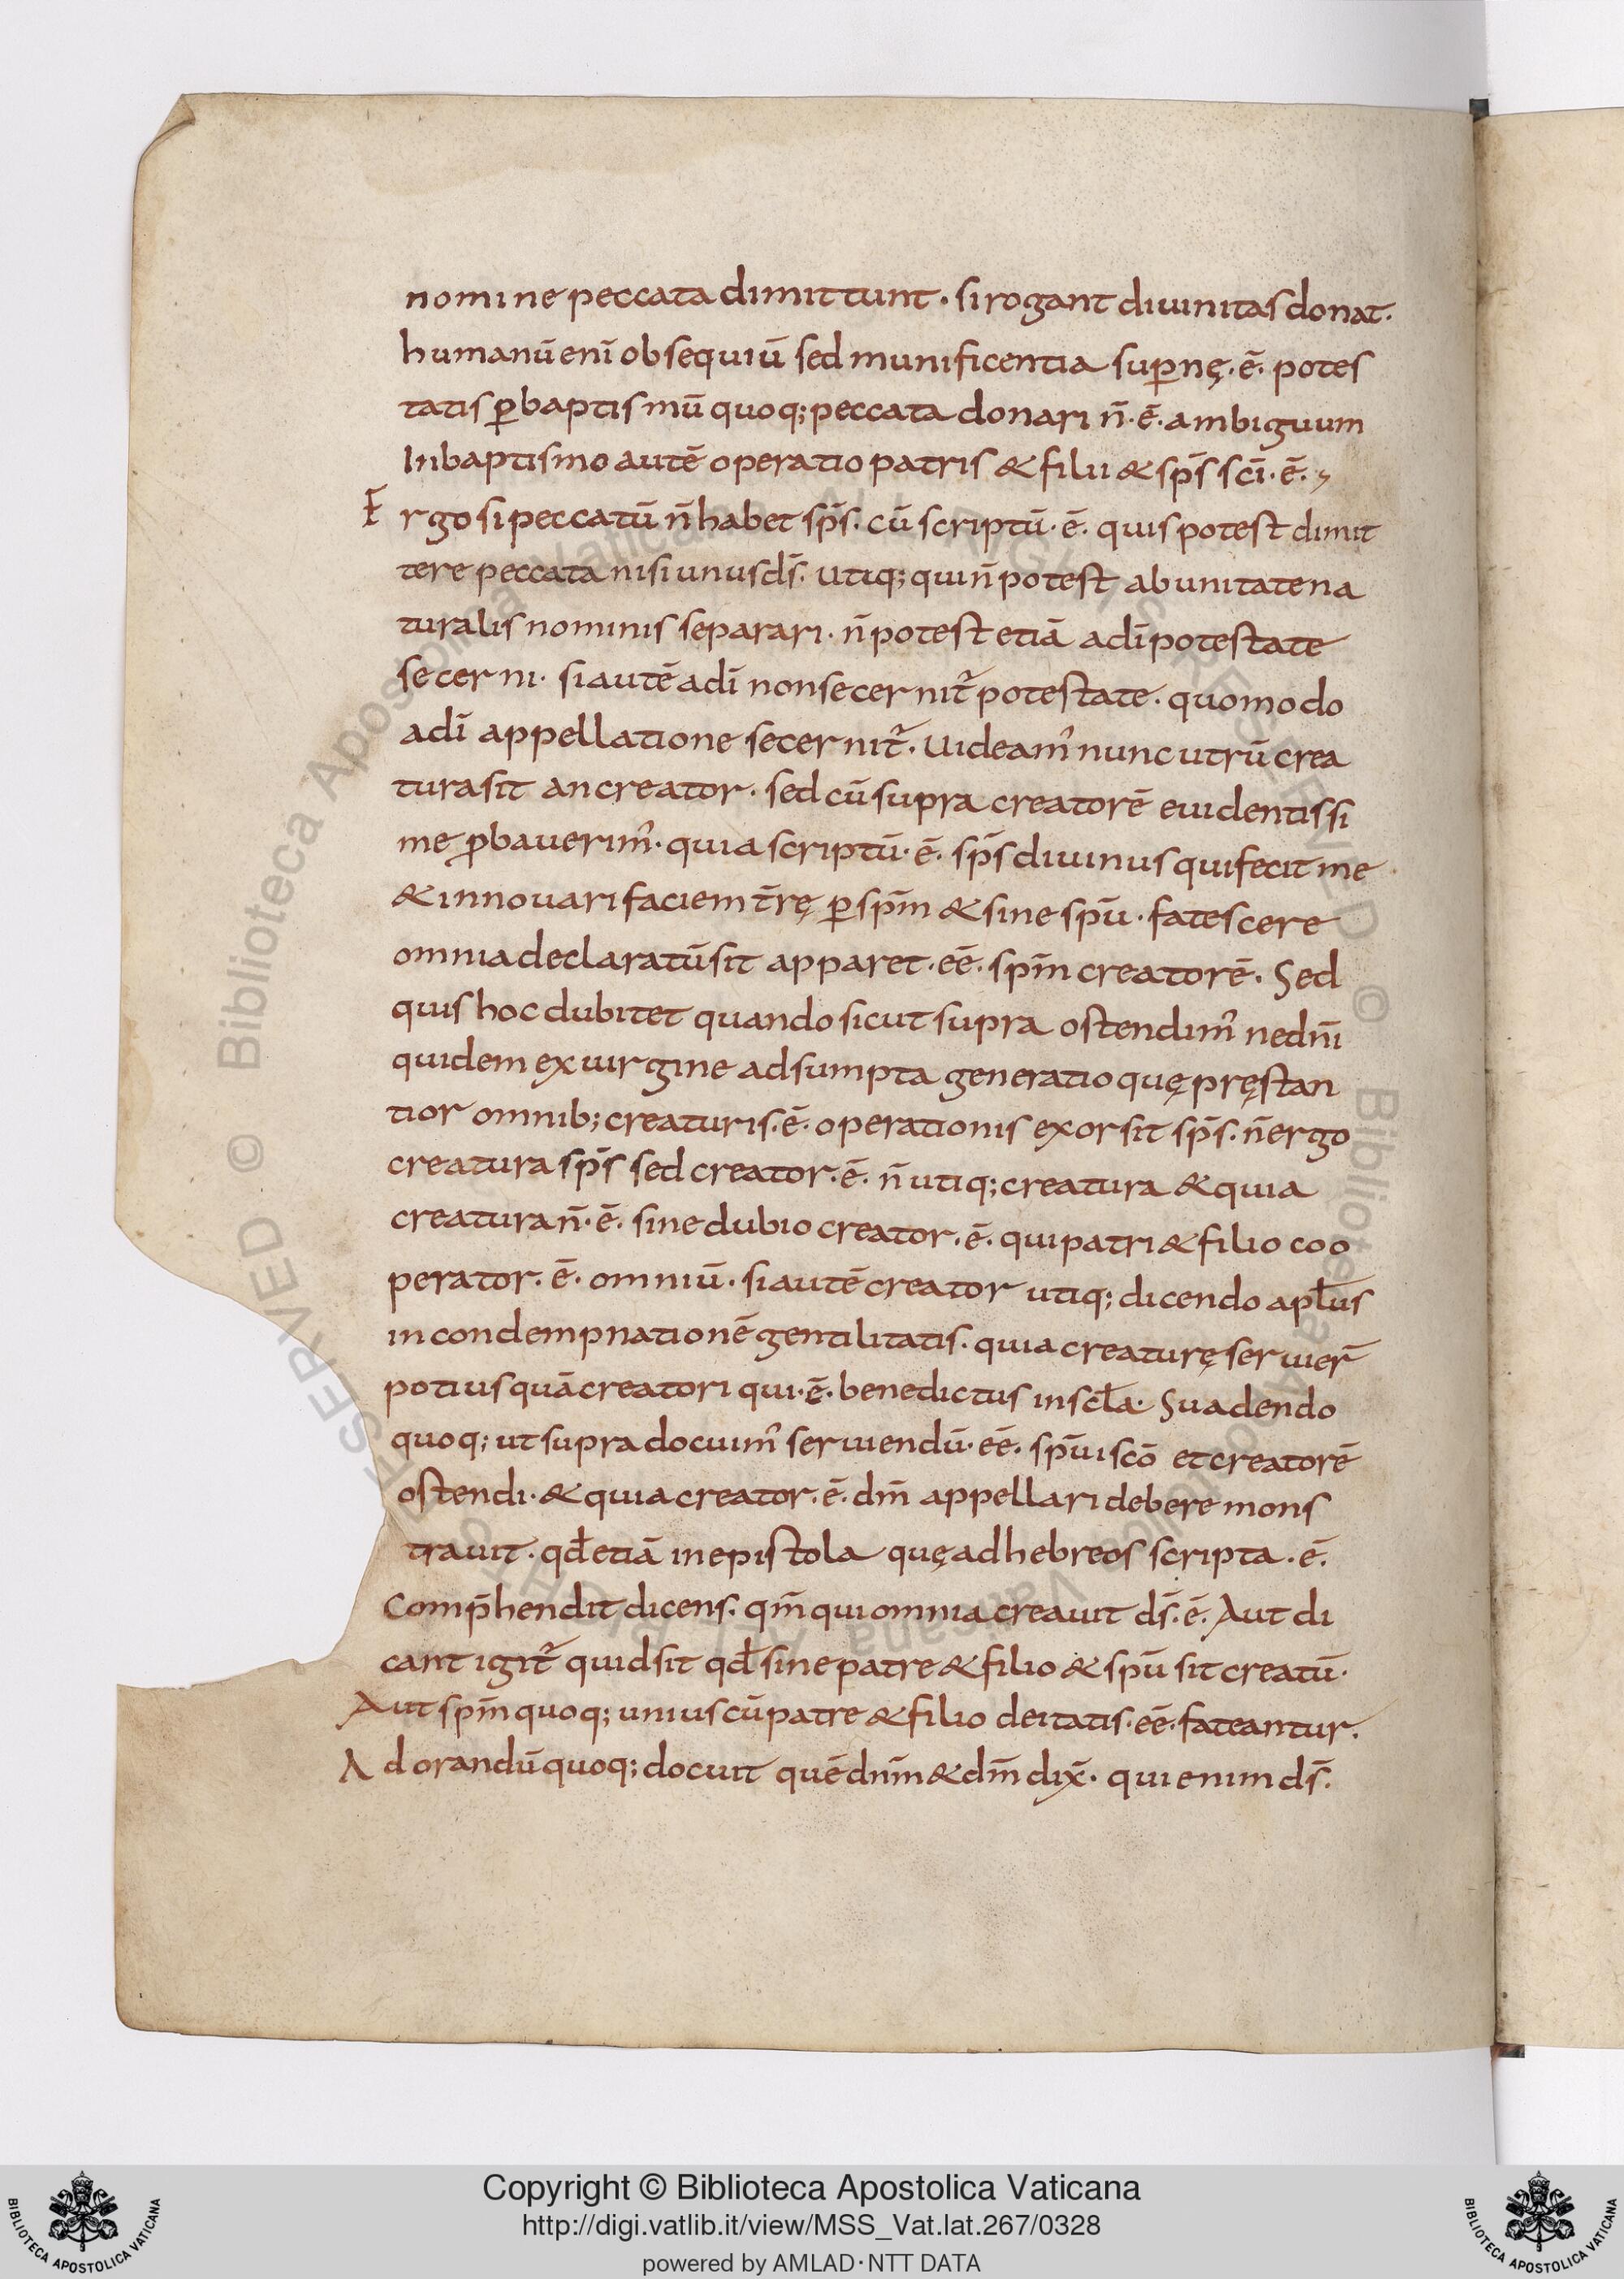 nomine peccata dimittunt. si rogant diuinitas donat.
humanū enī obsequiū sed munificentia suꝑnę. ē. potes
tatis ꝑ baptismū quoq; peccata donari n̄. ē. ambiguum
In baptismo autē operatio patris & filii & sp̄s sc̄i. ē.
Ergo si peccatū n̄ habet sp̄s. cū scriptū. ē. quis potest dimit
tere peccata nisi unus ds̄. utiq; qui n̄ potest ab unitate na
turalis nominis separari. n̄ potest etiā a dī potestate
secerni. si autē a dī non secernit̄ potestate. quomodo
a dī appellatione secernit̄. Uideam᾽ nunc utrū crea
tura sit an creator. sed cū supra creatorē euidentissi
me ꝓbauerim᾽. quia scriptū. ē. sp̄s diuinus qui fecit me
& innouari faciem t̄rę ꝑ sp̄m & sine spū. fatescere
omnia declaratū sit apparet. eē. sp̄m creatorē. Sed
quis hoc dubitet quando sicut supra ostendim᾽ ne dn̄i
quidem ex uirgine adsumpta generatio quę pręstan
tior omnib; creaturis. ē. operationis exors sit sp̄s. n̄ ergo
creatura sp̄s sed creator. ē. n̄ utiq; creatura & quia
creatura n̄. ē. sine dubio creator. ē. qui patri & filio coo
perator. ē. omniū. si autē creator utiq; dicendo apl̄us
in condempnationē gentilitatis. quia creaturę seruier̄
potius quā creatori qui. ē. benedictus in scl̄a. Suadendo
quoq; ut supra docuim᾽ seruiendū. eē. spūi scō et creatorē
ostendi. & quia creator. ē. dm̄ appellari debere mons
trauit. qđ etiā in epistola quę ad hebreos scripta. ē.
Comp̄hendit dicens. qm̄ qui omnia creauit ds̄. ē. Aut di
cant igit̄ quid sit qđ sine patre & filio & spū sit creatū.
Aut sp̄m quoq; unius cū patre & filio deitatis. eē. fateantur.
Adorandū quoq; docuit quē dn̄m & dm̄ dix̄. qui enim ds̄.
Copyright © Biblioteca Apostolica Vaticana
http://digi.vatlib.it/view/MSS_Vat.lat.267/0328
powered by AMLAD · NTT DATA
BIBLIOTECA APOSTOLICA VATICANA
BIBLIOTECA APOSTOLICA VATICANA